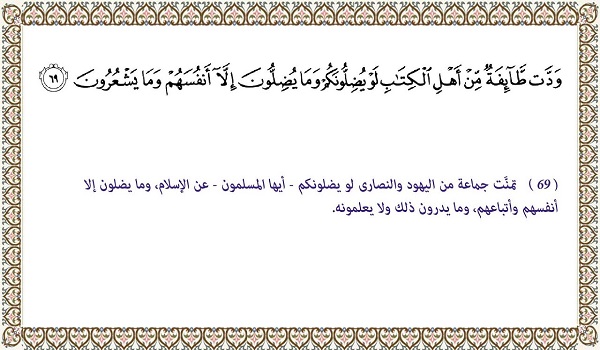 وَدَّت طَّآئِفَةٌ مِّنْ أَهْلِ ٱلْكِتَٰبِ لَوْ يُضِلُّونَكُمْ وَمَا يُضِلُّونَ إِلَّآ أَنفُسَهُمْ وَمَا يَشْعُرُونَ ٦٩
( 69 ) تمنَّت جماعة من اليهود والنصارى لو يضلونكم - أيها المسلمون - عن الإسلام، وما يضلون إلا
أنفسهم وأتباعهم، وما يدرون ذلك ولا يعلمونه.